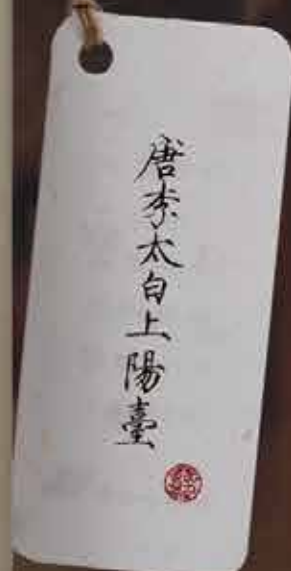 唐李太白上陽臺